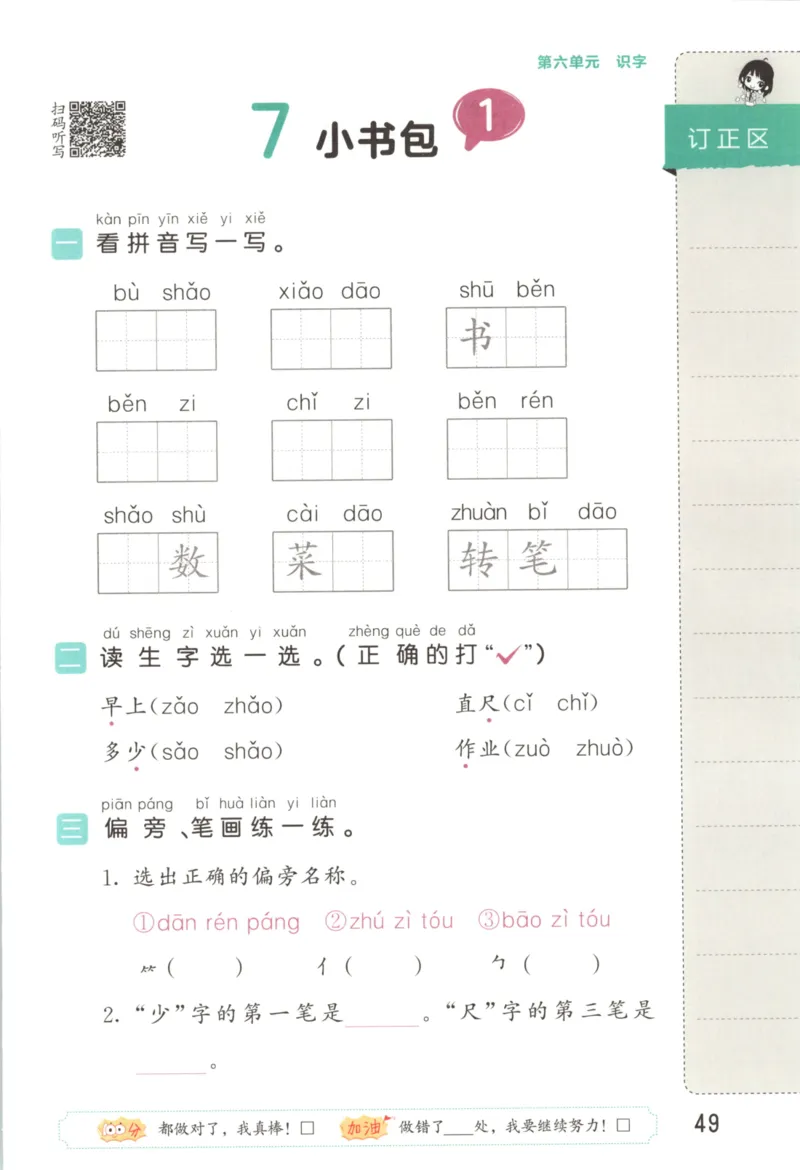 第六单元 识字
扫码听写
7 小书包 1
订正区
kàn pīn yīn xiě yi xiě
一 看拼音写一写。
bù shǎo xiǎo dāo shū běn
书
běn zi chǐ zi běn rén
shǎo shù cài dāo zhuàn bǐ dāo
数 菜 转笔
dú shēng zì xuǎn yi xuǎn zhèng què de dǎ
二 读生字选一选。(正确的打“✓”)
早上(zǎo zhǎo) 直尺(cǐ chǐ)
多少(sǎo shǎo) 作业(zuò zhuò)
piān páng bǐ huà liàn yi liàn
三 偏旁、笔画练一练。
1. 选出正确的偏旁名称。
①dān rén páng ②zhú zì tóu ③bāo zì tóu
⺮( ) 亻( ) 勹( )
2. “少”字的第一笔是______。“尺”字的第三笔是
______。
100分 都做对了,我真棒!□ 加油 做错了___处,我要继续努力!□
49